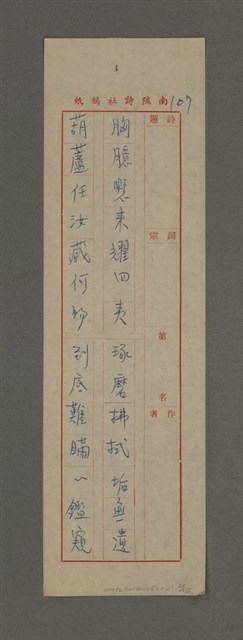 南陔詩社稿紙
107
詩題
詞宗
第 名
作者
胸臆懸來耀四夷 琢磨拂拭垢無遺
葫蘆任汝藏何物 到底難瞞一鑑窺